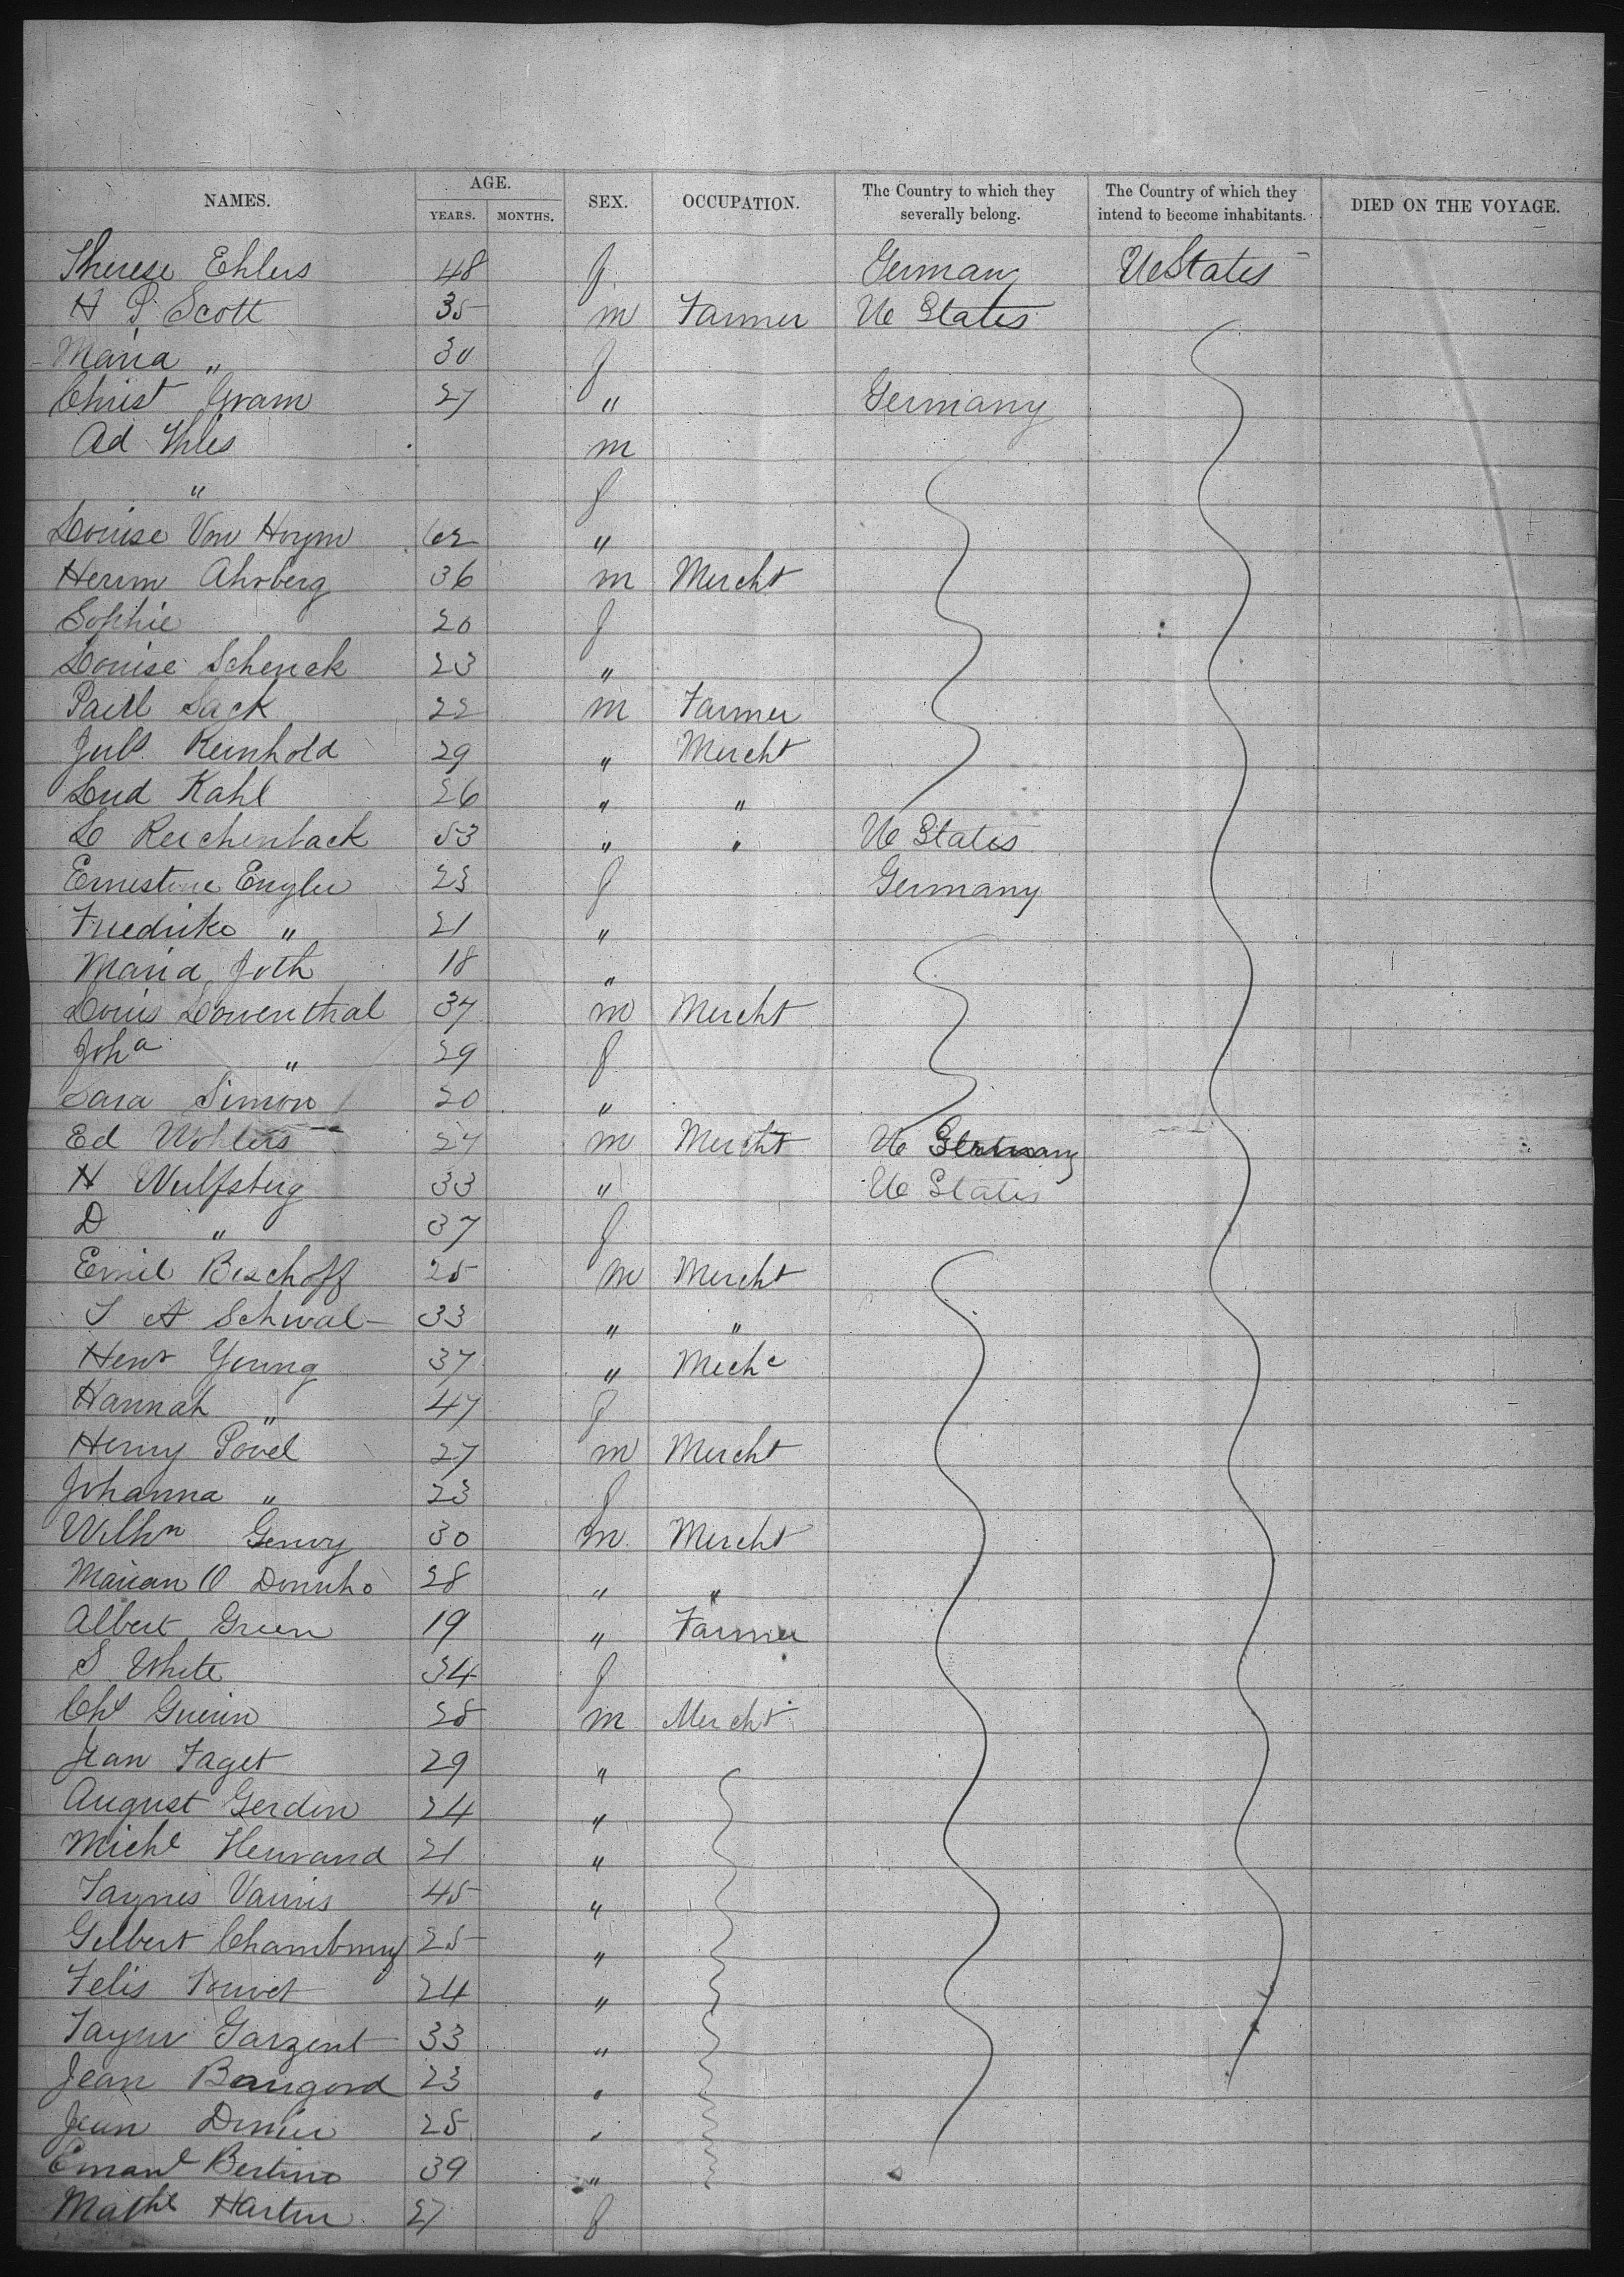 NAMES. AGE. SEX. OCCUPATION. The Country to which they severally belong. The Country of which they intend to become inhabitants. DIED ON THE VOYAGE.
YEARS. MONTHS.
Therese Ehlers 48 f German Ue States
H P. Scott 35 m Farmer Ue States
Maria " 30 f
Christ Gram 27 " Germany
Ad Ihles m
" f
Louise Von Hoym 62 "
Herrm Ahrberg 36 m Mercht
Sophie 20 f
Louise Schenck 23 "
Paul Sack 22 m Farmer
Juls. Reinhold 29 " Mercht
Lud Kahl 26 " "
L Reichenback 53 " " Ue States
Ernestine Engler 23 f Germany
Friedrike " 21 "
Maria Joth 18 "
Louis Lowenthal 37 m Mercht
Joha " 29 f
Sara Simon 20 "
Ed Wohlers 27 m Mercht Ue
H Wulfsberg 33 " Ue States
D " 37 f
Emil Bischoff 25 m Mercht
S A Schwal 33 " "
Henr Young 37 " Mechc
Hannah " 47 f
Henry Povel 27 m Mercht
Johanna " 23 f
Wilhm 30 m Mercht
Marian O 28 " "
Albert Green 19 " Farmer
S White 34 f
Chs Guerin 28 m Mercht
Jean Faget 29 "
August Gerdin 24 "
Michl 21 "
45 "
Gilbert 25 "
Felis 24 "
33 "
Jean 23 "
Jean 25 "
Emanl Bertino 39 "
Mathe Hartin 27 f